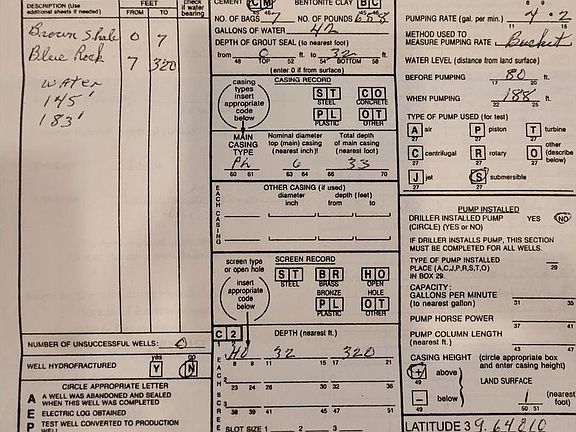 DESCRIPTION (Use additional sheets if needed)
FEET
FROM TO
check if water bearing
Brown Shale 0 7
Blue Rock 7 320
WATER
145'
183'
NUMBER OF UNSUCCESSFUL WELLS: 0
WELL HYDROFRACTURED
yes no
Y N
CIRCLE APPROPRIATE LETTER
A A WELL WAS ABANDONED AND SEALED WHEN THIS WELL WAS COMPLETED
E ELECTRIC LOG OBTAINED
P TEST WELL CONVERTED TO PRODUCTION
CEMENT CM BENTONITE CLAY BC
NO. OF BAGS 7 NO. OF POUNDS 658
GALLONS OF WATER 42
DEPTH OF GROUT SEAL (to nearest foot)
from 0 ft. to 32 ft.
48 TOP 52 54 BOTTOM 58
(enter 0 if from surface)
casing types insert appropriate code below
CASING RECORD
ST CO
STEEL CONCRETE
PL OT
PLASTIC OTHER
MAIN CASING TYPE
Nominal diameter top (main) casing (nearest inch)!
Total depth of main casing (nearest foot)
PL 6 33
60 61 63 64 66 70
EACH CASING
OTHER CASING (if used)
diameter inch
depth (feet) from to
screen type or open hole
insert appropriate code below
SCREEN RECORD
ST BR HO
STEEL BRASS OPEN
BRONZE HOLE
PL OT
PLASTIC OTHER
C 2
DEPTH (nearest ft.)
HO 32 320
8 9 11 15 17 21
23 24 26 30 32 36
38 39 41 45 47 51
SLOT SIZE 1 2 3
PUMPING RATE (gal. per min.) 4.2
11 15
METHOD USED TO MEASURE PUMPING RATE Bucket
WATER LEVEL (distance from land surface)
BEFORE PUMPING 80 ft.
17 20
WHEN PUMPING 188 ft.
22 25
TYPE OF PUMP USED (for test)
A air P piston T turbine
27 27 27
C centrifugal R rotary O other (describe below)
27 27 27
J jet S submersible
27 27
PUMP INSTALLED
DRILLER INSTALLED PUMP YES NO
(CIRCLE) (YES or NO)
IF DRILLER INSTALLS PUMP, THIS SECTION MUST BE COMPLETED FOR ALL WELLS.
TYPE OF PUMP INSTALLED
PLACE (A,C,J,P,R,S,T,O)
IN BOX 29. 29
CAPACITY:
GALLONS PER MINUTE
(to nearest gallon) 31 35
PUMP HORSE POWER 37 41
PUMP COLUMN LENGTH
(nearest ft.) 43 47
CASING HEIGHT (circle appropriate box and enter casing height)
+ above
49 LAND SURFACE
- below 1 (nearest foot)
49 50 51
LATITUDE 39.64210